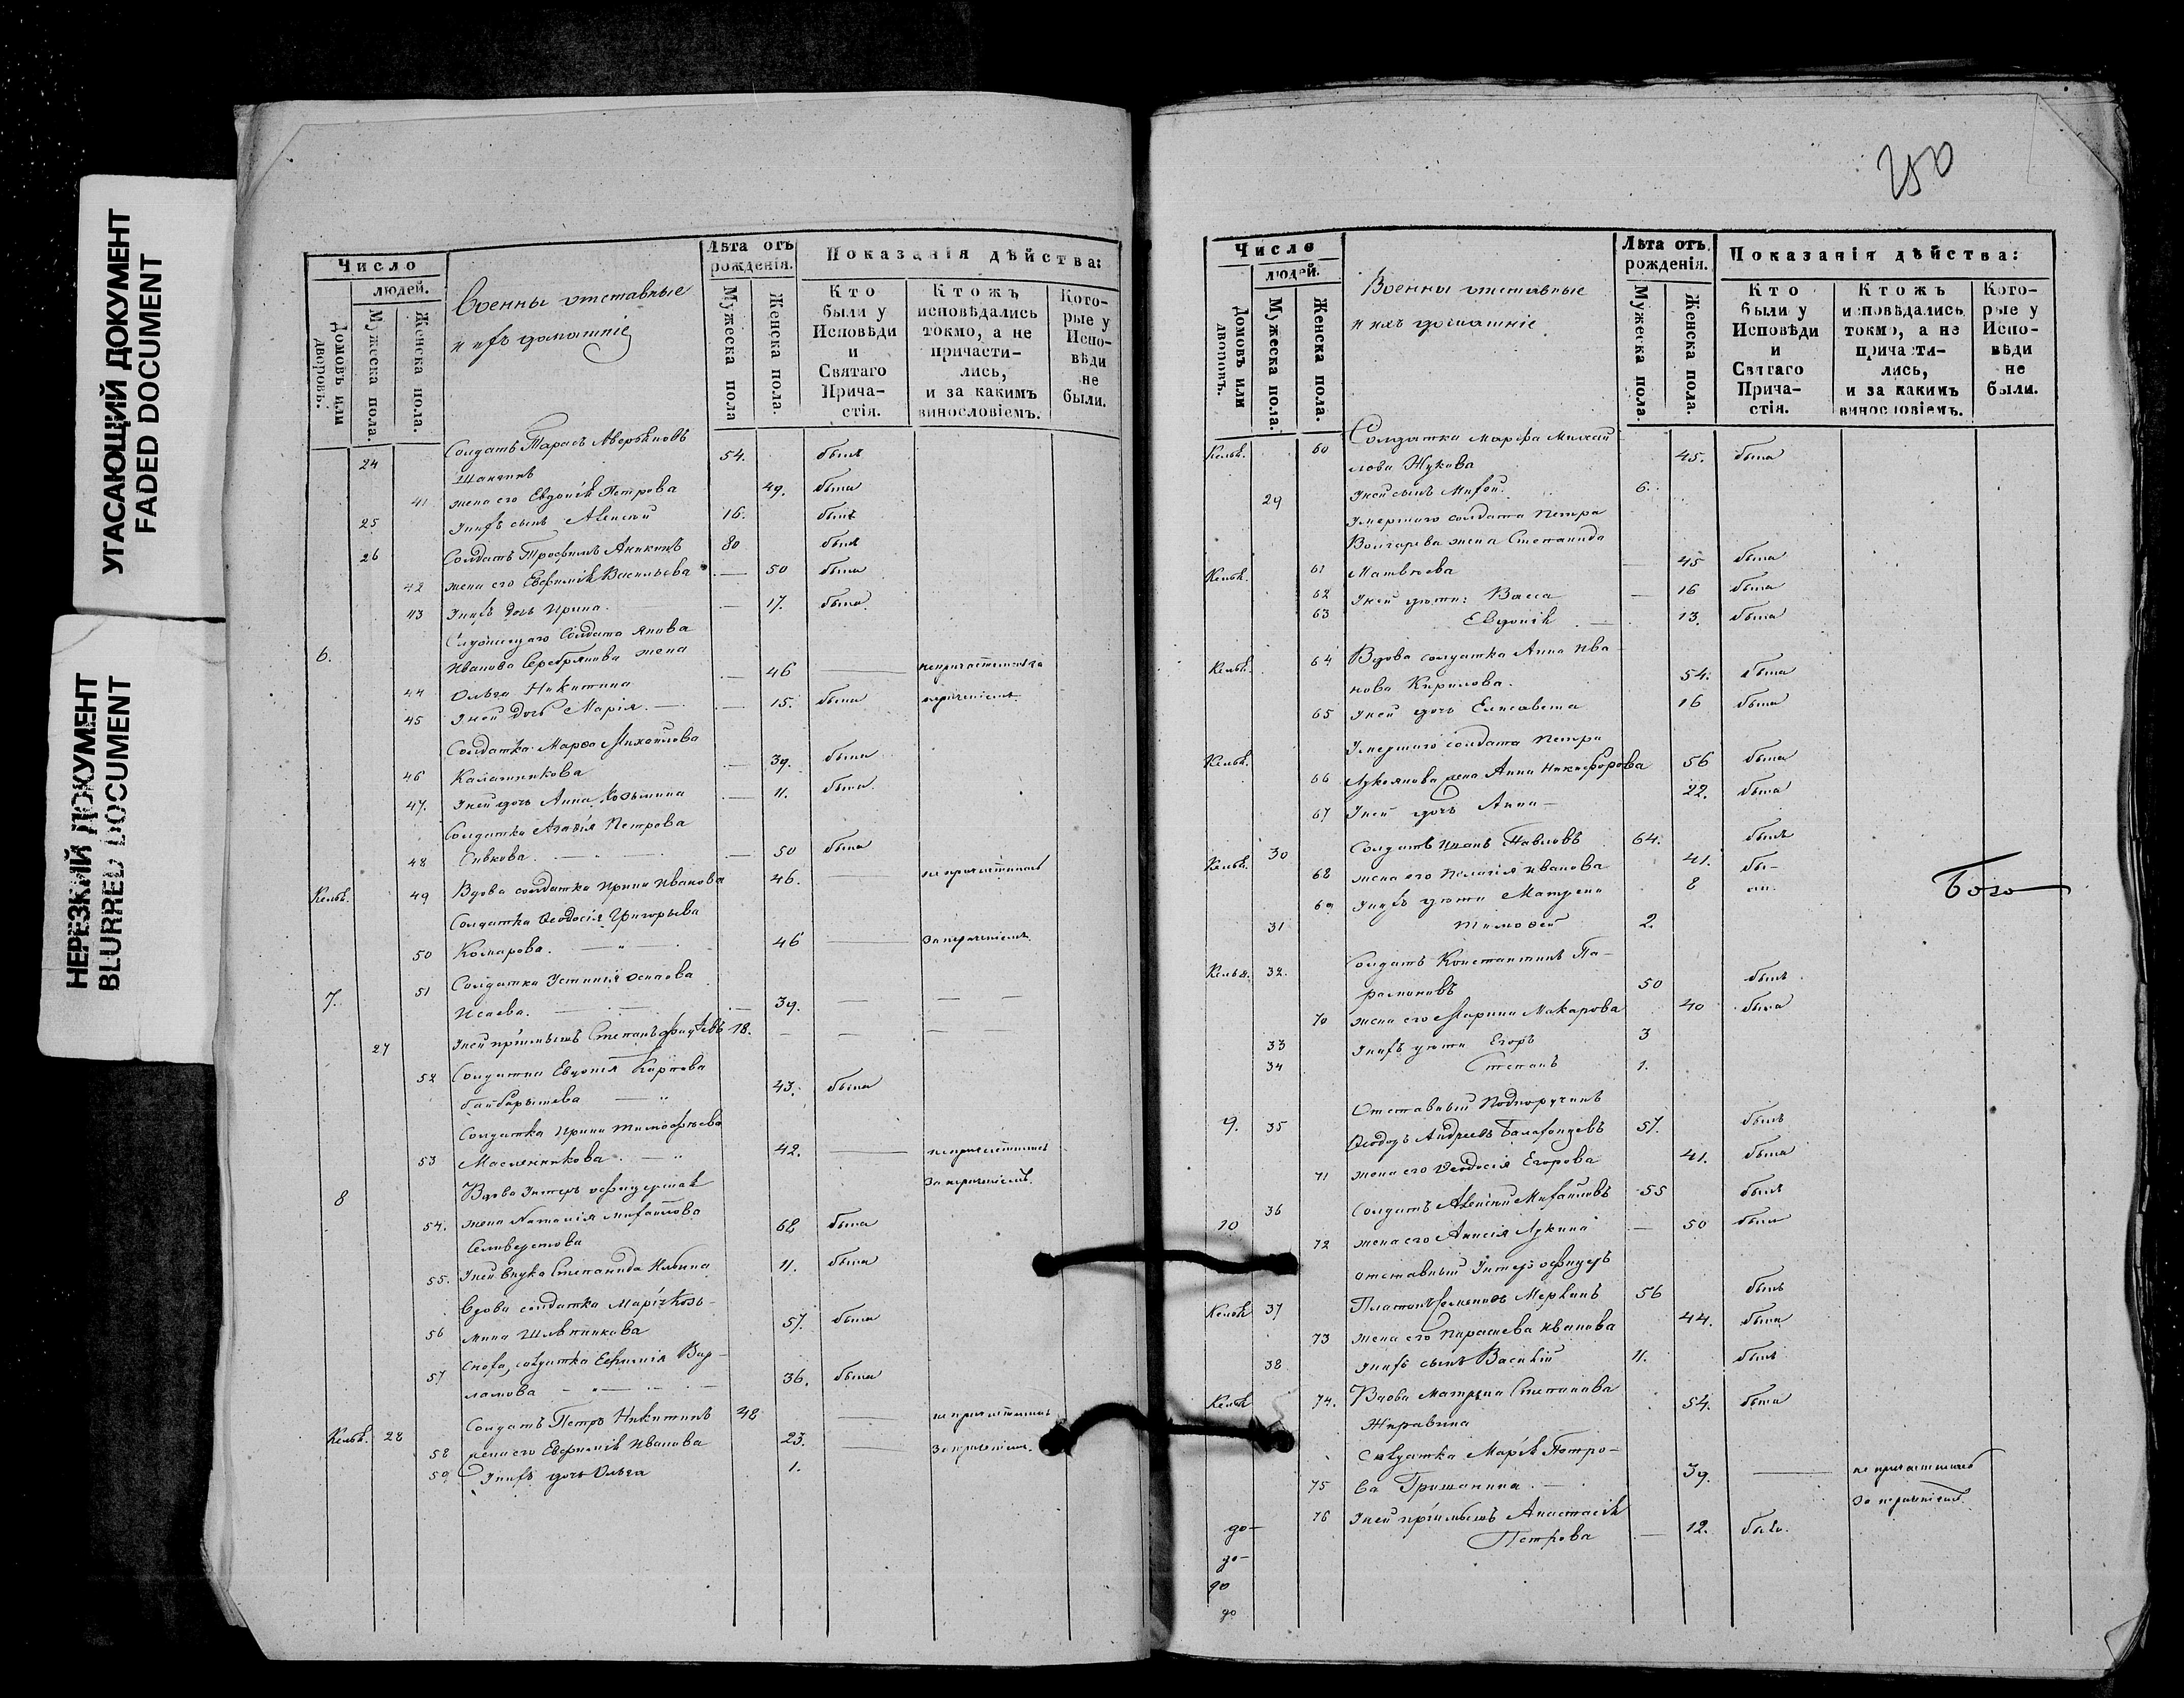 УГАСАЮЩИЙ ДОКУМЕНТ
FADED DOCUMENT
НЕРЕЗКИЙ ДОКУМЕНТ
BLURRED DOCUMENT
Число
людей.
Домовъ или дворовъ.
Мужеска пола.
Женска пола.
Военны отставные
и ихъ домашніе
Лѣта отъ рожденія.
Мужеска пола
Женска пола.
Показанія дѣйства:
Кто были у Исповѣди и Святаго Прича-стія.
Ктожъ исповѣдались токмо, а не причасти-лись, и за какимъ винословіемъ.
Кото-рые у Испо-вѣди не были.
24 Солдатъ Тарасъ 54. былъ
41 жена его Евдокія Петрова 49. была
25 у нихъ сынъ Алексѣй 16. былъ
26 Солдатъ Трофимъ Аникинъ 80 былъ
42 жена его Евфимія Васильева — 50 была
43 У нихъ дочь Ирина. — 17. была
6. солдата
Иванова жена
44 Ольга Никитина — 46 —
45 У ней дочь Марія. — 15. была
Солдатка Марѳа Михайлова
46 Калашникова — 39. была
47. У ней дочь Анна Козьмина — 11. была
Солдатка Агафія Петрова
48 Сивкова. — 50 была
Кельѣ. 49 Вдова солдатка Ирина Иванова 46. —
Солдатка Ѳеодосія Григорьева
50 Комарова. — 46 —
51 Солдатка Устинія Осипова
7. Исаева. — 39. — — —
27 У ней пріимышъ Степанъ 18. — — —
52 Солдатка Евдокія Карпова
43. была
Солдатка Ирина Тимофѣева
53 Масленникова. — 42. —
8 Вдова Унтеръ офицерша
54. жена Наталія Михайлова 68 была
Селиверстова
55. У ней внука Степанида Ильина 11. была
Вдова солдатка Марія Козь-
56 мина 57. была
57 Сноха, солдатка Евфимія Вар-
ламова — 36. была
Кельѣ. 28 Солдатъ Петръ Никитинъ 48 —
58 жена его Евфимія Иванова 23. —
59 У нихъ дочь Ольга 1.
250
Число
людей.
Домовъ или дворовъ.
Мужеска пола.
Женска пола.
Военны отставные
и ихъ домашніе
Лѣта отъ рожденія.
Мужеска пола.
Женска пола.
Показанія дѣйства:
Кто были у Исповѣди и Святаго Прича-стія.
Ктожъ исповѣдались токмо, а не причасти-лись, и за какимъ винословіемъ.
Кото-рые у Испо-вѣди не были.
Кельѣ. 60 Солдатка Марфа Михай
лова Жукова 45. была
29 У ней сынъ 6.
Умершаго солдата Петра
жена Степанида
Кельѣ. 61 Матвѣева — 45 была
62 У ней дѣти: Васса — 16 была
63 Евдокія — 13. была
Кельѣ. 64 Вдова солдатка Анна Ива
нова Кирилова. 54. была
65 У ней дочь Елисавета 16 была
Умершаго солдата Петра
Кельѣ. 66 Лукоянова жена Анна Никифорова 56 была
67 У ней дочь Анна — 22. была
30 Солдатъ Иванъ Павловъ 64. былъ
Кельѣ. 68 жена его Пелагія Иванова 41. бы-
69 У нихъ дѣти Матрена 8 ли.
31 Тимоѳей 2.
Кельѣ. 32. Солдатъ Константинъ Па-
рамоновъ 50 былъ
70 жена его Марина Макарова 40 была
33 У нихъ дѣти Егоръ 3
34 Степанъ 1.
Отставный Подпоручикъ
9. 35 Ѳеодоръ Андреевъ 57. былъ
71 жена его Ѳеодосія Егорова 41. была
36 Солдатъ Алексѣй Михайловъ 55 былъ
10 72 жена его Анисія Лукина — 50 была
отставный Унтеръ офицеръ
Кельѣ 37 Платонъ Семеновъ 56 былъ
73 жена его Парасковья Иванова 44. была
38 У нихъ сынъ Василій 11. былъ
Кельѣ 74. Вдова Матрена Степанова 54. была
Журавина
Солдатка Марія Петро-
75 ва Гришанина. — 39. —
76 У ней пріимышъ Анастасія
до- Петрова — 12. была.
до-
до
до